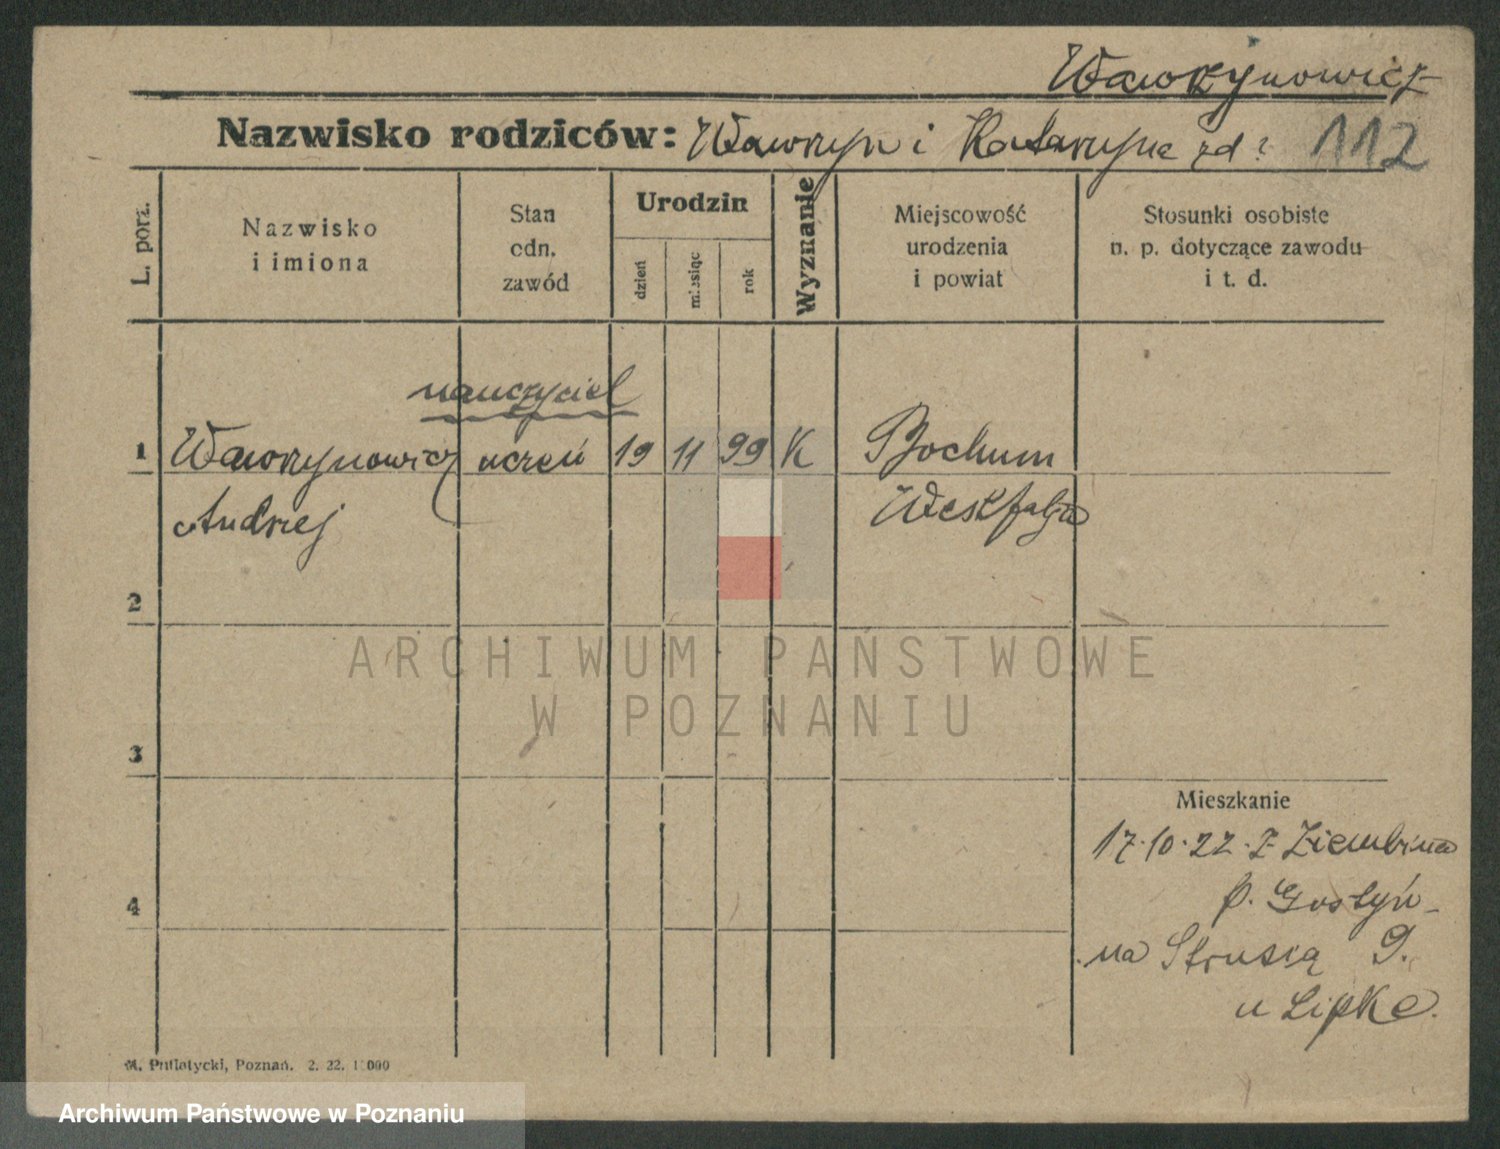 Wawrzynowicz
Nazwisko rodziców: Wawrzyn i Katarzyna zd? 112
L. porz.
Nazwisko
i imiona
Stan
odn.
zawód
Urodzin
dzień
miesiąc
rok
Wyznanie
Miejscowość
urodzenia
i powiat
Stosunki osobiste
n. p. dotyczące zawodu
i t. d.
nauczyciel
1 Wawrzynowicz uczeń 19 11 99 K Bochum
Andrzej Westfalja
2
3
4
Mieszkanie
17.10.22. z Ziembina
p. Gostyń
na Strusią 9.
u Lipke.
M. Putiatycki, Poznań. 2. 22. 1 000
ARCHIWUM PAŃSTWOWE
W POZNANIU
Archiwum Państwowe w Poznaniu